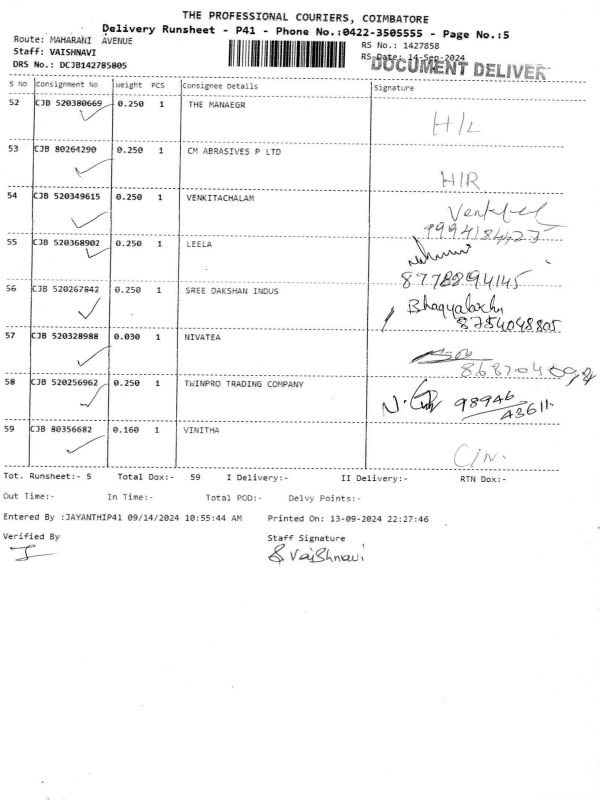 THE PROFESSIONAL COURIERS, COIMBATORE
Delivery Runsheet - P41 - Phone No.:0422-3505555 - Page No.:5
Route: MAHARANI AVENUE
RS No.: 1427858
Staff: VAISHNAVI
RS Date: 14-Sep-2024
DRS No.: DCJB142785805
DOCUMENT DELIVER
S No Consignment No Weight PCS Consignee Details Signature
52 CJB 520380669 0.250 1 THE MANAEGR
H/L
53 CJB 80264290 0.250 1 CM ABRASIVES P LTD
H/R
54 CJB 520349615 0.250 1 VENKITACHALAM
55 CJB 520368902 0.250 1 LEELA
8778894145
56 CJB 520267842 0.250 1 SREE DAKSHAN INDUS
8754048805
57 CJB 520328988 0.030 1 NIVATEA
58 CJB 520256962 0.250 1 TWINPRO TRADING COMPANY
98946
43611
59 CJB 80356682 0.160 1 VINITHA
Tot. Runsheet:- 5 Total Dox:- 59 I Delivery:- II Delivery:- RTN Dox:-
Out Time:- In Time:- Total POD:- Delvy Points:-
Entered By :JAYANTHIP41 09/14/2024 10:55:44 AM Printed On: 13-09-2024 22:27:46
Verified By Staff Signature
S Vaishnavi